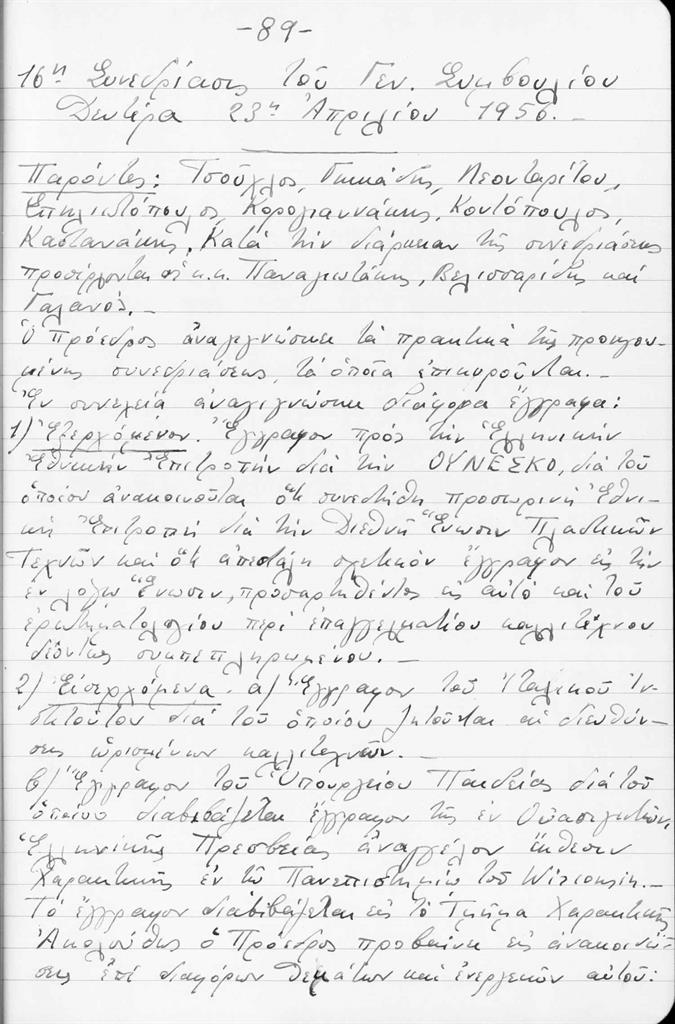 -89-
16η Συνεδρίασις τοῦ Γεν. Συμβουλίου
Δευτέρα 23η Ἀπριλίου 1956.-
Παρόντες: Τσοῦχλος, Γηκάδης, Λεονταρίτου,
Σπηλιωτόπουλος, Κορογιαννάκης, Κοντόπουλος,
Καστανάκης. Κατά τήν διάρκειαν τῆς συνεδριάσεως
προσέρχονται οἱ κ.κ. Παναγιωτάκης, Βελισσαρίδης καί
Γαλανός.-
Ὁ Πρόεδρος ἀναγιγνώσκει τά πρακτικά τῆς προηγου-
μένης συνεδριάσεως, τά ὁποῖα ἐπικυροῦνται.-
Ἐν συνεχεία ἀναγιγνώσκει διάφορα ἔγγραφα:
1) Ἐξερχόμενον. Ἔγγραφον πρός τήν Ἑλληνικήν
Ἐθνικήν Ἐπιτροπήν διά τήν ΟΥΝΕΣΚΟ, διά τοῦ
ὁποίου ἀνακοινοῦται ὅτι συνεστήθη προσωρινή Ἐθνι-
κή Ἐπιτροπή διά τήν Διεθνῆ Ἕνωσιν Πλαστικῶν
Τεχνῶν καί ὅτι ἀπεστάλη σχετικόν ἔγγραφον εἰς τήν
ἐν λόγω Ἕνωσιν, προσαρτηθέντος εἰς αὐτό καί τοῦ
ἐρωτηματολογίου περί ἐπαγγελματίου καλλιτέχνου
δεόντως συμπεπληρωμένου.-
2) Εἰσερχόμενα. α) Ἔγγραφον τοῦ Ἰταλικοῦ Ἰν-
στιτούτου διά τοῦ ὁποίου ζητοῦνται αἱ διευθύν-
σεις ὡρισμένων καλλιτεχνῶν.-
β) Ἔγγραφον τοῦ Ὑπουργείου Παιδείας διά τοῦ
ὁποίου διαβιβάζεται ἔγγραφον τῆς ἐν Οὐασιγκτῶνι
Ἑλληνικῆς Πρεσβείας ἀναγγέλον ἔκθεσιν
Χαρακτικῆς ἐν τῶ Πανεπιστημίω τοῦ Wisconsin.-
Τό ἔγγραφον διαβιβάζεται εἰς τό Τμῆμα Χαρακτικῆς
Ἀκολούθως ὁ Πρόεδρος προβαίνει εἰς ἀνακοινώ-
σεις ἐπί διαφόρων θεμάτων καί ἐνεργειῶν αὐτοῦ: